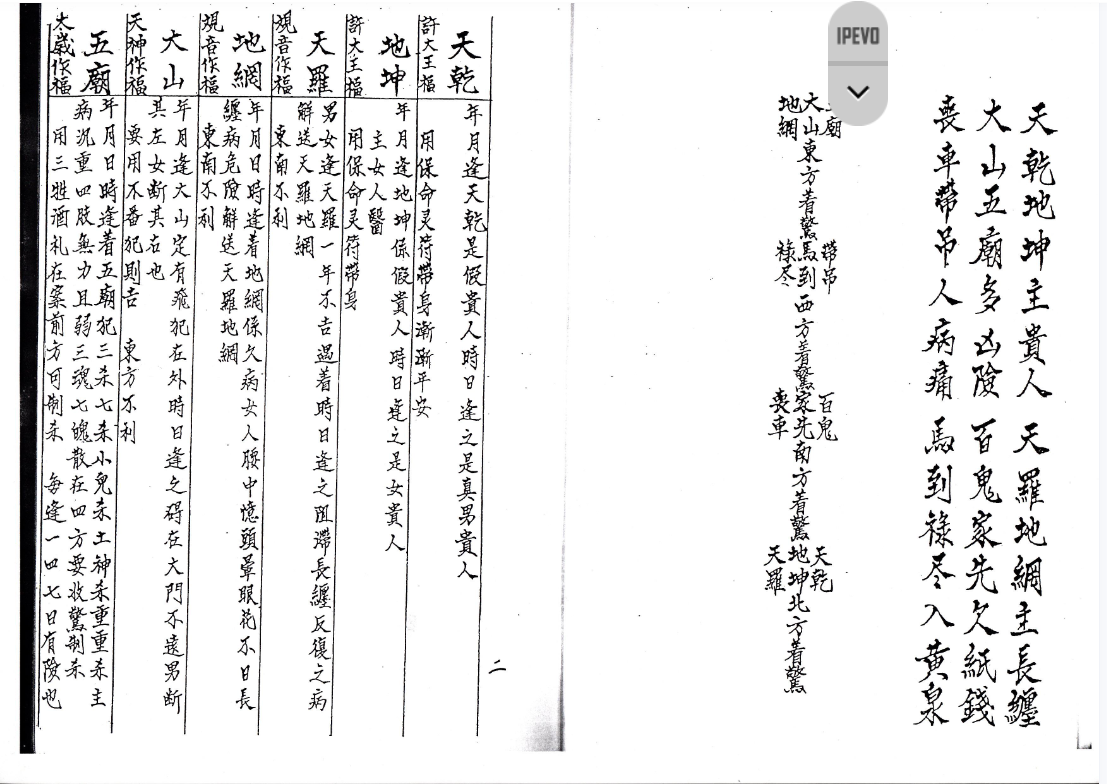 IPEVO
天乾地坤主貴人 天羅地網主長纏
大山五廟多凶險 百鬼家先欠紙錢
喪車帶吊人病痛 馬到祿尽入黄泉
廟
大山東方着驚
地網
帶吊
馬到西方着驚
祿尽
百鬼
家先南方着驚
喪車
天乾
地坤北方着驚
天羅
二
天乾
許大王福
年月逢天乾是假貴人時日逢之是真男貴人
用保命灵符帶身漸漸平安
地坤
許大主福
年月逢地坤係假貴人時日逢之是女貴人
主女人醫
用保命灵符帶身
天羅
覌音作福
男女逢天羅一年不吉遇着時日逢之阻滯長纏反復之病
解送天羅地網
東南不利
地網
覌音作福
年月日時逢着地網係久病女人腰中憶頭暈眼花不日長
纏病危險解送天羅地網
東南不利
大山
天神作福
年月逢大山定有飛犯在外時日逢之碍在大門不遠男断
其左女断其右也
要用不番犯則吉 東方不利
五廟
太歲作福
年月日時逢着五廟犯三杀七杀小兒杀土神杀重重杀主
病沉重四肢無力且弱三魂七魄散在四方要收驚制杀
用三牲酒礼在案前方可制杀 每逢一四七日有險也